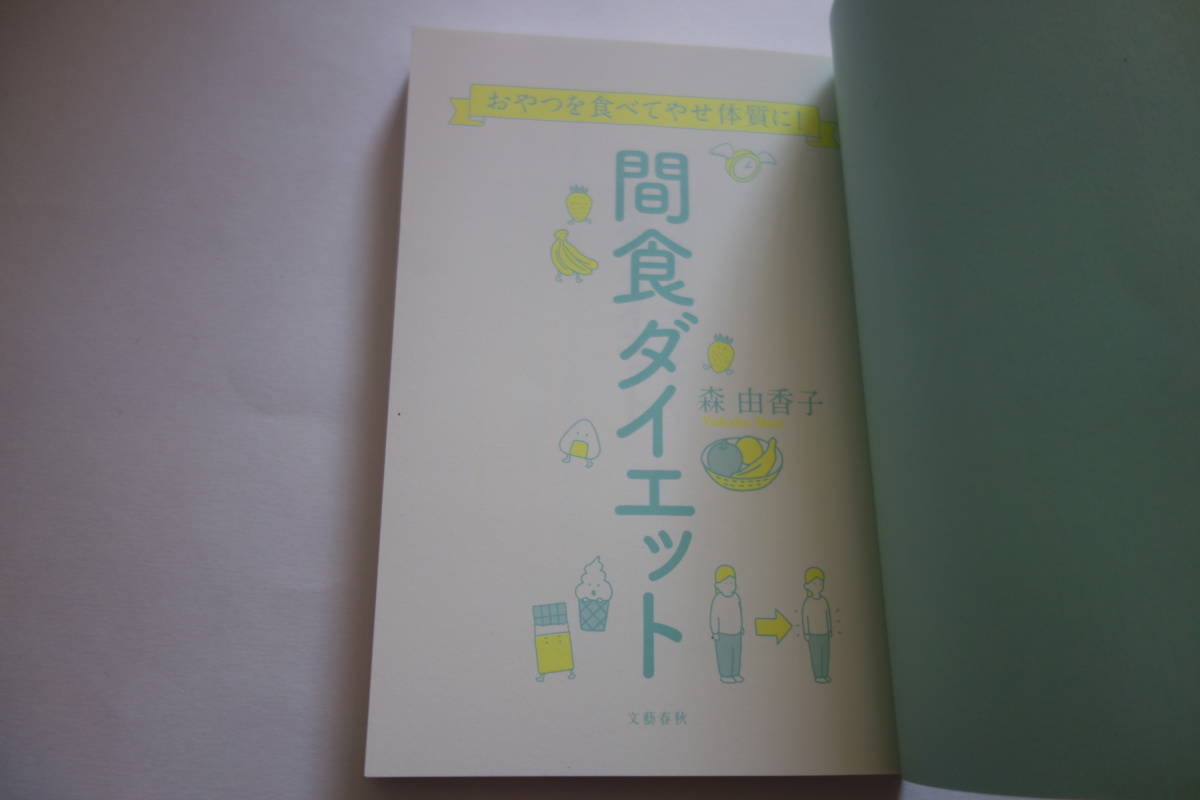 おやつを食べてやせ体質に!
間食ダイエット
森 由香子
Yukako Mori
文藝春秋